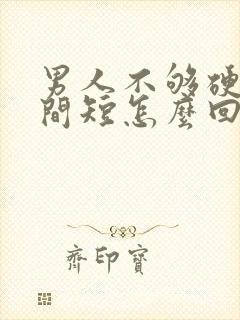 男人不够硬
間短怎麼回
齊印寶